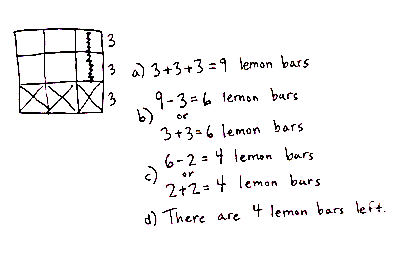 3
3
3
a) 3+3+3=9 lemon bars
b) 9-3=6 lemon bars
or
3+3=6 lemon bars
c) 6-2=4 lemon bars
or
2+2=4 lemon bars
d) There are 4 lemon bars left.